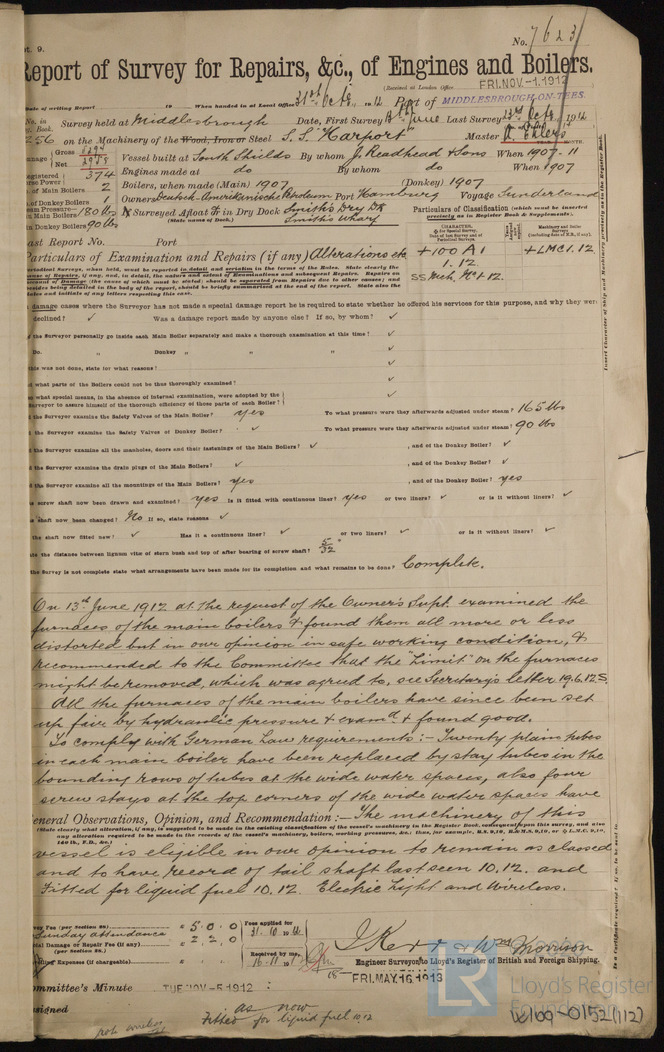 pt. 9.
No. 7623
Report of Survey for Repairs, &c., of Engines and Boilers.
(Received at London Office FRI. NOV - 1. 1912
Date of writing Report 19 When handed in at Local Office 31st Octr. 1912 Port of MIDDLESBROUGH-ON-TEES.
No. in Reg. Book. Survey held at Middlesbrough Date, First Survey 13th June Last Survey Octr. 1912
256 on the Machinery of the Wood, Iron or Steel S.S. "Harport" Master
Gross
Net 2978 Vessel built at South Shields By whom J. Readhead & Sons When 1907-11
Registered Horse Power 374 Engines made at do By whom do When 1907
of Main Boilers 2 Boilers, when made (Main) 1907 (Donkey) 1907
of Donkey Boilers 1 Owners Deutsch-Amerikanische Petroleum Port Hamburg Voyage Sunderland
in Main Boilers 180 lbs If Surveyed Afloat or in Dry Dock Smiths Dry Dk
Smiths Wharf
(State name of Dock.)
in Donkey Boilers 90 lbs
Particulars of Classification (which must be inserted precisely as in Register Book & Supplements).
Last Report No. Port
+100 A1
1.12
SS Mch. No 1.12.
+LMC 1.12
Particulars of Examination and Repairs (if any) Alterations etc
damage cases where the Surveyor has not made a special damage report he is required to state whether he offered his services for this purpose, and why they were
declined? ✓ Was a damage report made by anyone else? If so, by whom? ✓
the Surveyor personally go inside each Main Boiler separately and make a thorough examination at this time? ✓
Do. " Donkey " " " ✓
this was not done, state for what reasons? ✓
what parts of the Boilers could not be thoroughly examined? ✓
what special means, in the absence of internal examination, were adopted by the Surveyor to assure himself of the thorough efficiency of those parts of each Boiler? ✓
the Surveyor examine the Safety Valves of the Main Boiler? yes To what pressure were they afterwards adjusted under steam? 165 lbs
the Surveyor examine the Safety Valves of Donkey Boiler? ✓ To what pressure were they afterwards adjusted under steam? 90 lbs
the Surveyor examine all the manholes, doors and their fastenings of the Main Boilers? ✓ , and of the Donkey Boiler? ✓
the Surveyor examine the drain plugs of the Main Boilers? ✓ , and of the Donkey Boiler? ✓
the Surveyor examine all the mountings of the Main Boilers? yes , and of the Donkey Boiler? yes
screw shaft now been drawn and examined? yes Is it fitted with continuous liner? yes or two liners? ✓ or is it without liners? ✓
shaft now been changed? No If so, state reasons ✓
the shaft now fitted new? ✓ Has it a continuous liner? ✓ or two liners? ✓ or is it without liners? ✓
the distance between lignum vitæ of stern bush and top of after bearing of screw shaft? 5/32"
the Survey is not complete state what arrangements have been made for its completion and what remains to be done? Complete.
On 13th June 1912 at the request of the Owner's Supt. examined the
furnaces of the main boilers & found them all more or less
distorted but in our opinion in safe working condition, &
recommended to the Committee that the "Limit" on the furnaces
might be removed, which was agreed to, see Secretary's letter 19.6.12 S.
All the furnaces of the main boilers have since been set
up fair by hydraulic pressure & examd & found good.
To comply with German Law requirements:- Twenty plain tubes
in each main boiler have been replaced by stay tubes in the
bounding rows of tubes at the wide water spaces, also four
screw stays at the top corners of the wide water spaces have
General Observations, Opinion, and Recommendation:- The machinery of this
vessel is eligible in our opinion to remain as classed
and to have record of tail shaft last seen 10.12. and
Fitted for liquid fuel 10.12. Electric Light and Wireless.
Survey Fee (per Section 28) £ 5.0.0 Fees applied for
Sunday attendance £ 2.2.0 31.10.12
Special Damage or Repair Fee (if any) (per Section 28.)
Expenses (if chargeable) Received by me, 16.11.
& Wm Morrison
Engineer Surveyor to Lloyd's Register of British and Foreign Shipping.
FRI. MAY. 16 1913
Committee's Minute TUE. NOV - 5 1912
Assigned as now
Fitted for liquid fuel 10.12
LR
Lloyd's Register
Foundation
W1109-0152(1/2)